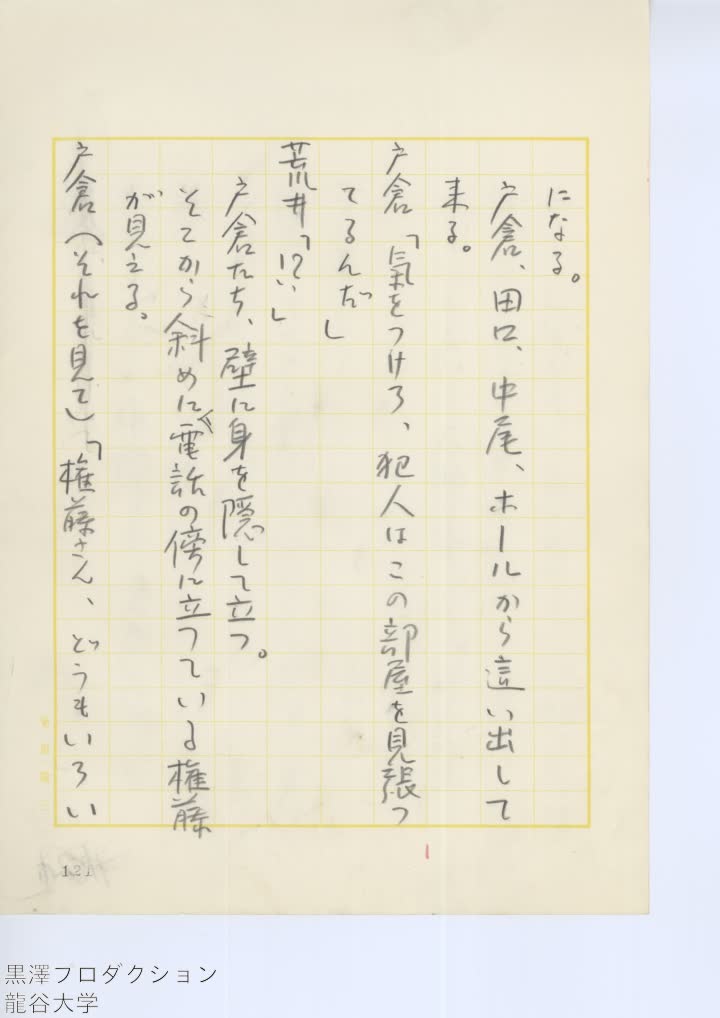 になる。
戸倉、田口、中尾、ホールから這い出して
来る。
戸倉「氣をつけろ、犯人はこの部屋を見張つ
てるんだ」
荒井「！？‥」
戸倉たち、壁に身を隠して立つ。
そこから斜めに電話の傍に立つている権藤
が見える。
戸倉（それを見て）「権藤さん、どうもいろい
121
黒澤プロダクション
龍谷大学